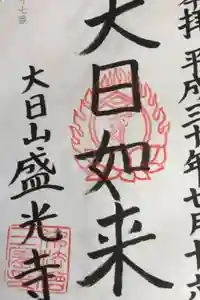 拝 平成三十年七月十六
大日如来
大日山 盛光寺
七番